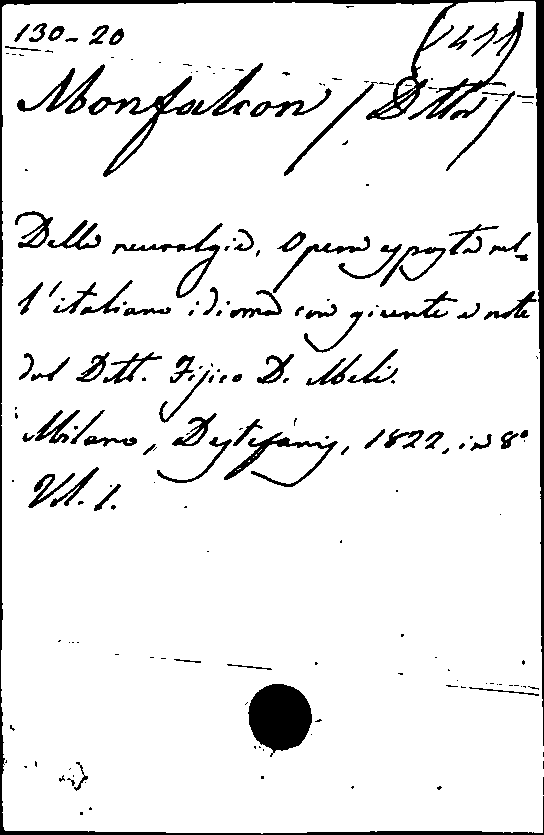 130-20
Monfalcon / Dttor /
Della neuralgia, Opera esposta nel-
l'italiano idioma con giunte e note
dal Dott. Fisico D. Meli.
Milano, Destefanis, 1822, in 8°
Vol. 1.